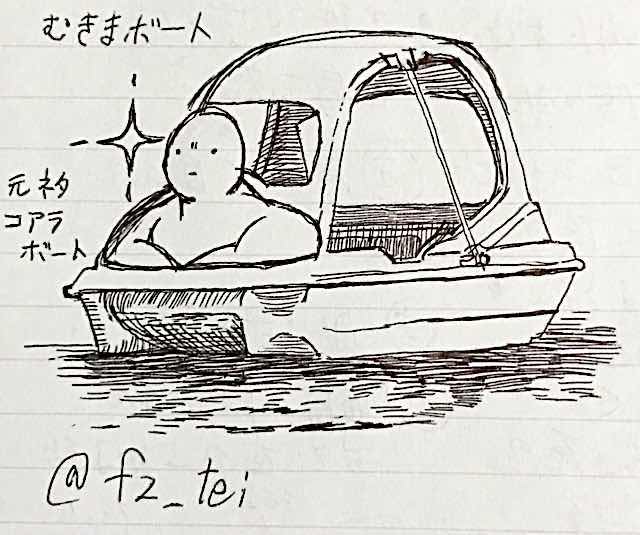 むきまボート
元ネタ
コアラ
ボート
@fz_tei